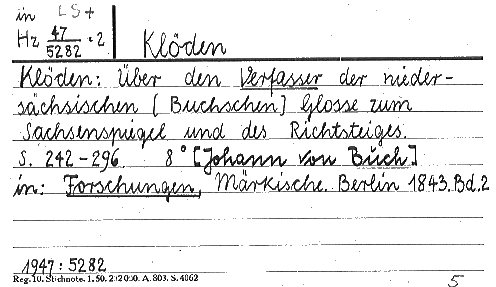 in LS+
Hz 47/5282 · 2
Klöden
Klöden: Über den Verfasser der nieder-
sächsischen [Buchschen] Glosse zum
Sachsenspiegel und des Richtsteiges.
S. 242-296. 8° [Johann von Buch]
in: Forschungen, Märkische. Berlin 1843. Bd. 2
1947: 5282
Reg. 10. Stichnote. 1. 50. 2/2050. A. 803. S. 4062
5